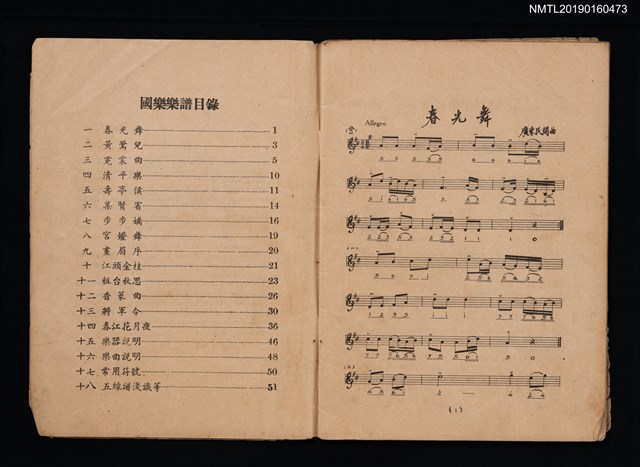 NMTL20190160473
國樂樂譜目錄
一 春光舞 1
二 黃鶯兒 3
三 霓裳曲 5
四 清平樂 10
五 壽亭侯 11
六 集賢賓 14
七 步步嬌 16
八 宮燈舞 19
九 畫眉序 20
十 江頭金桂 21
十一 粧台秋思 23
十二 香篆曲 26
十三 將軍令 30
十四 春江花月夜 36
十五 樂器說明 46
十六 樂曲說明 48
十七 常用符號 50
十八 五線譜淺識等 51
春光舞
Allegro
廣東民間曲
(1)